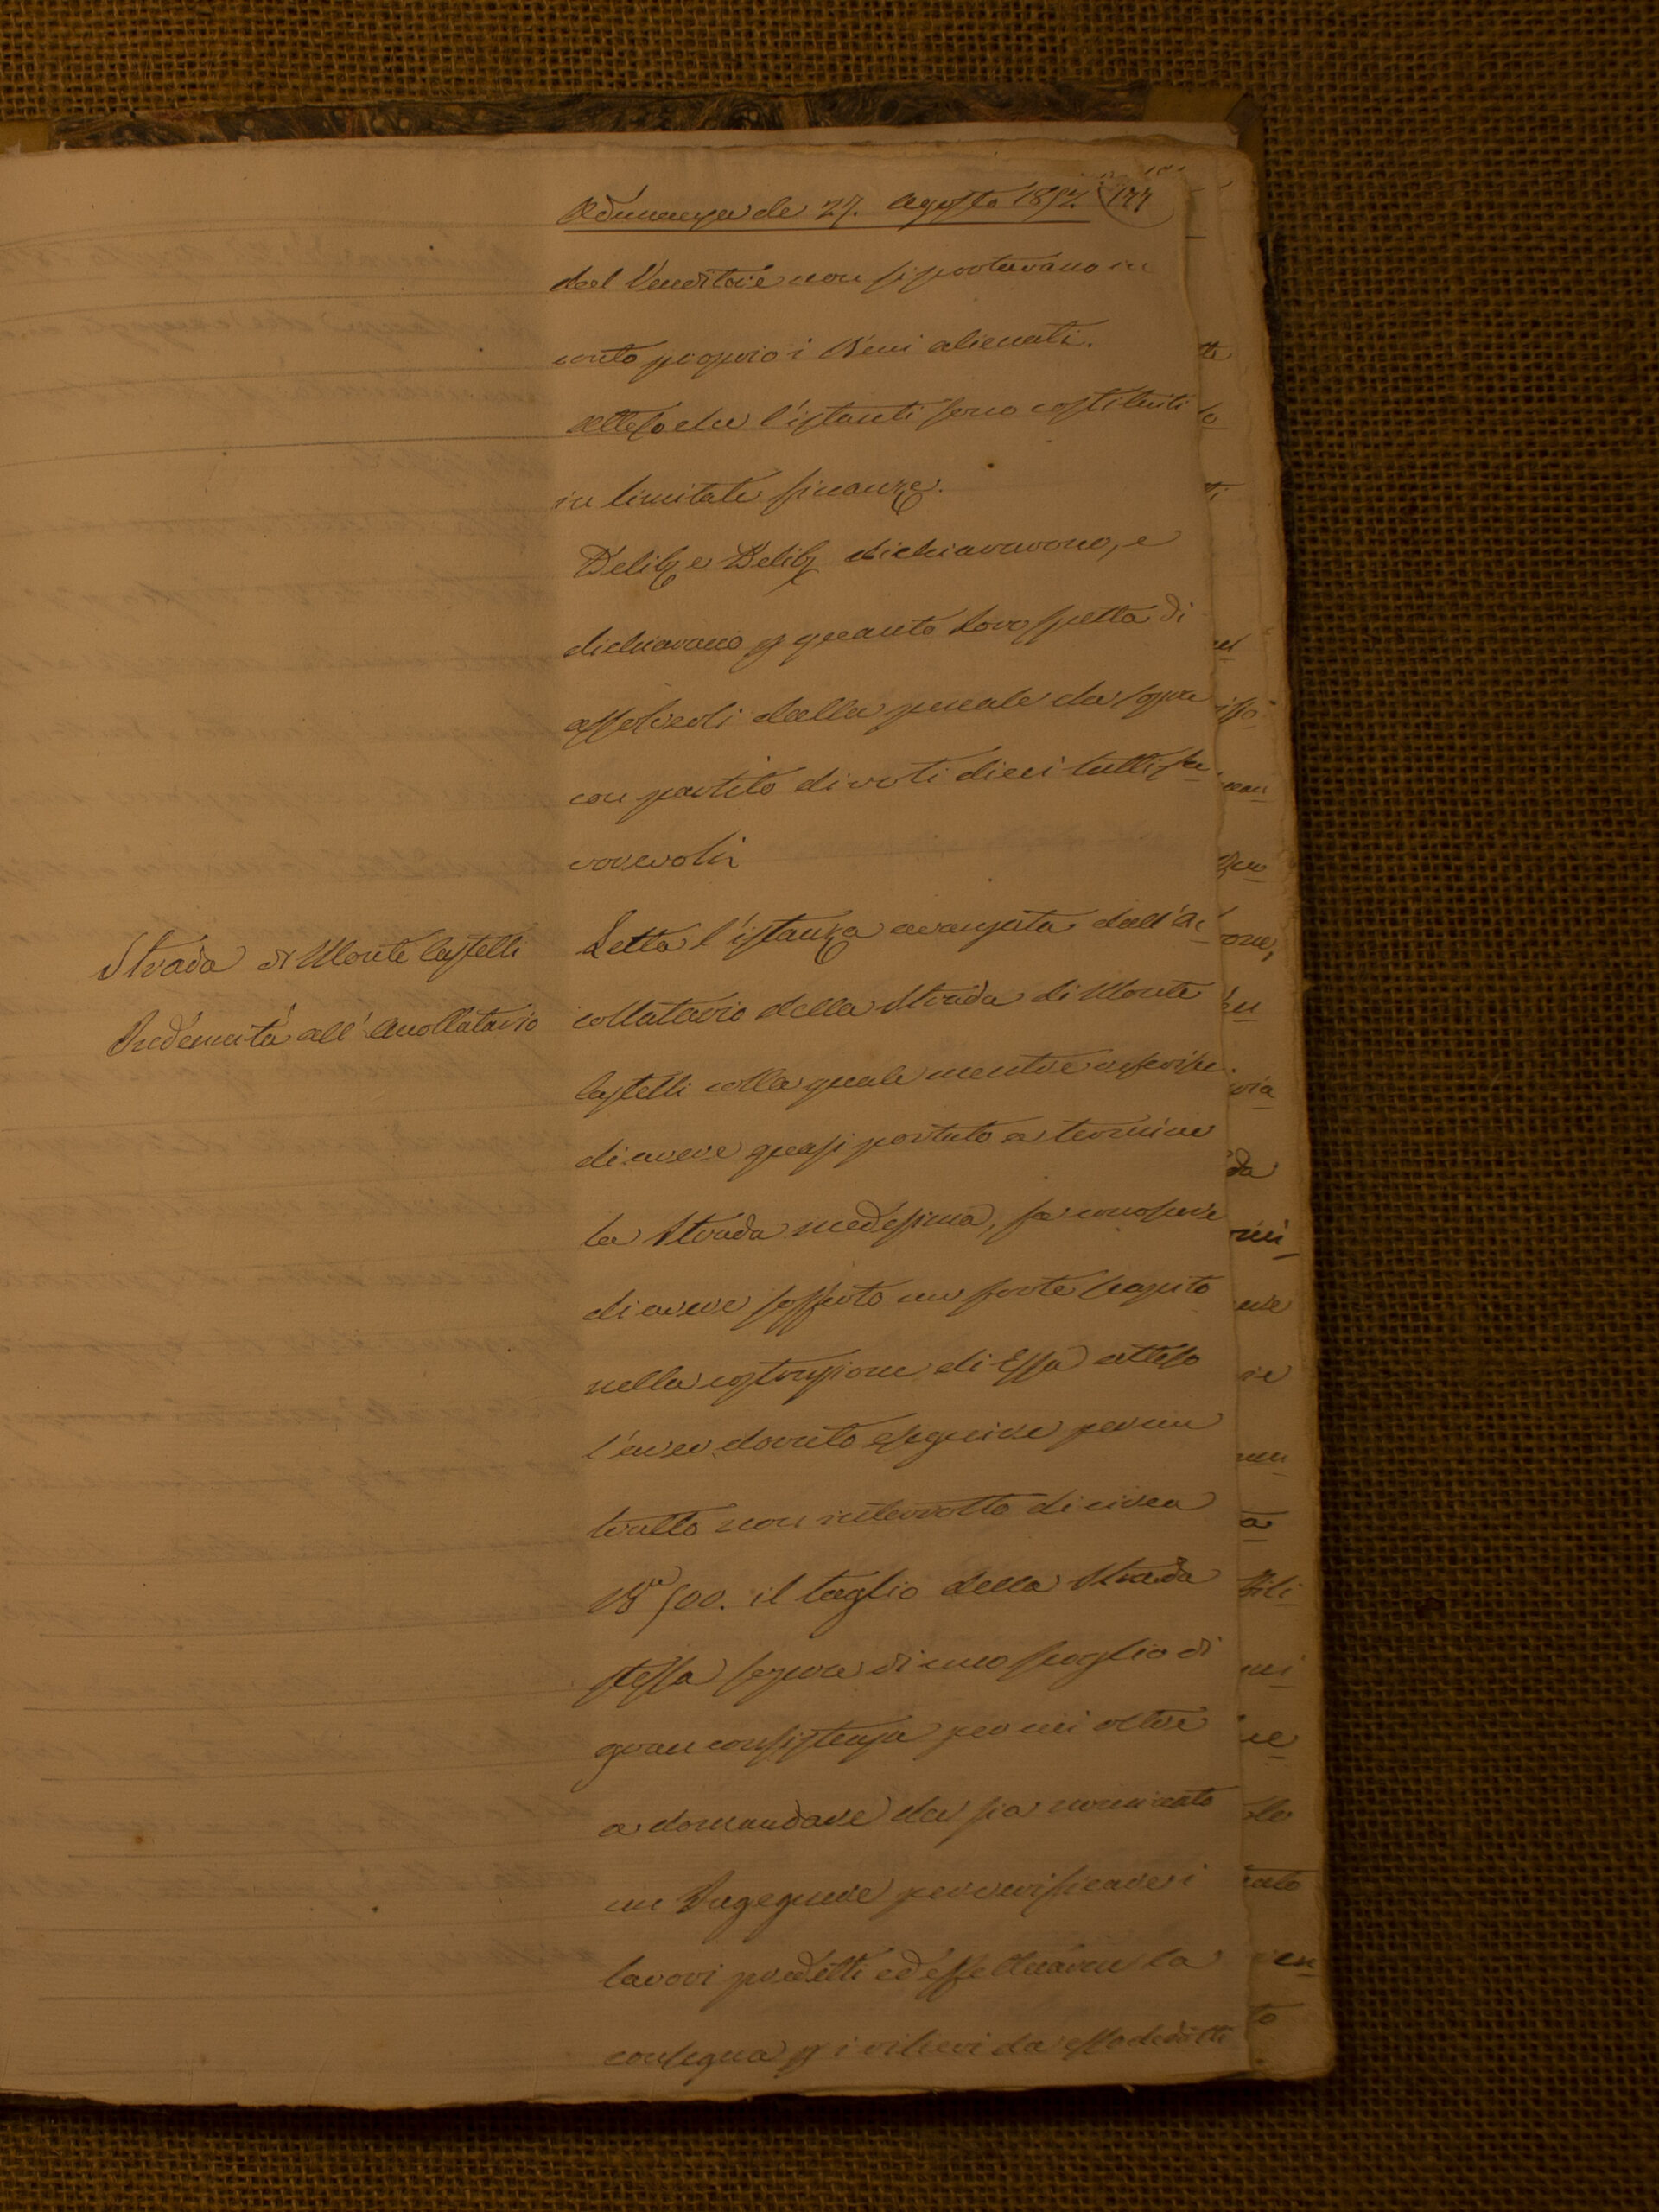 Adunanza de 27. Agosto 1857. 144
dal Venditore non si portavano in
conto proprio i Beni alienati.
Atteso che l'istanti sono costituiti
in limitate finanze.
Delib e Delib dichiararono, e
dichiarano p quanto Loro spetta di
assolverli dalla penale da sopra
con partito di voti dieci tutti fa
vorevoli
Strada di Monte Castelli
Indennita all'Accollatario
Letta l'istanza avanzata dall'Ac
collatario della Strada di Monte
Castelli colla quale mentre referisce
di avere quasi portato a termine
la Strada medesima, fa conoscere
di avere sofferto un forte scapito
nella costruzione di Essa atteso
l'aver dovuto eseguire per un
tratto non interrotto di circa
Ba 500. il taglio della Strada
stessa sopra di uno scoglio di
gran consistenza per cui oltre
a domandare che sia nominato
un Ingegnere per verificare i
lavori predetti ed effettuarne la
consegna p i rilievi da esso dedotti